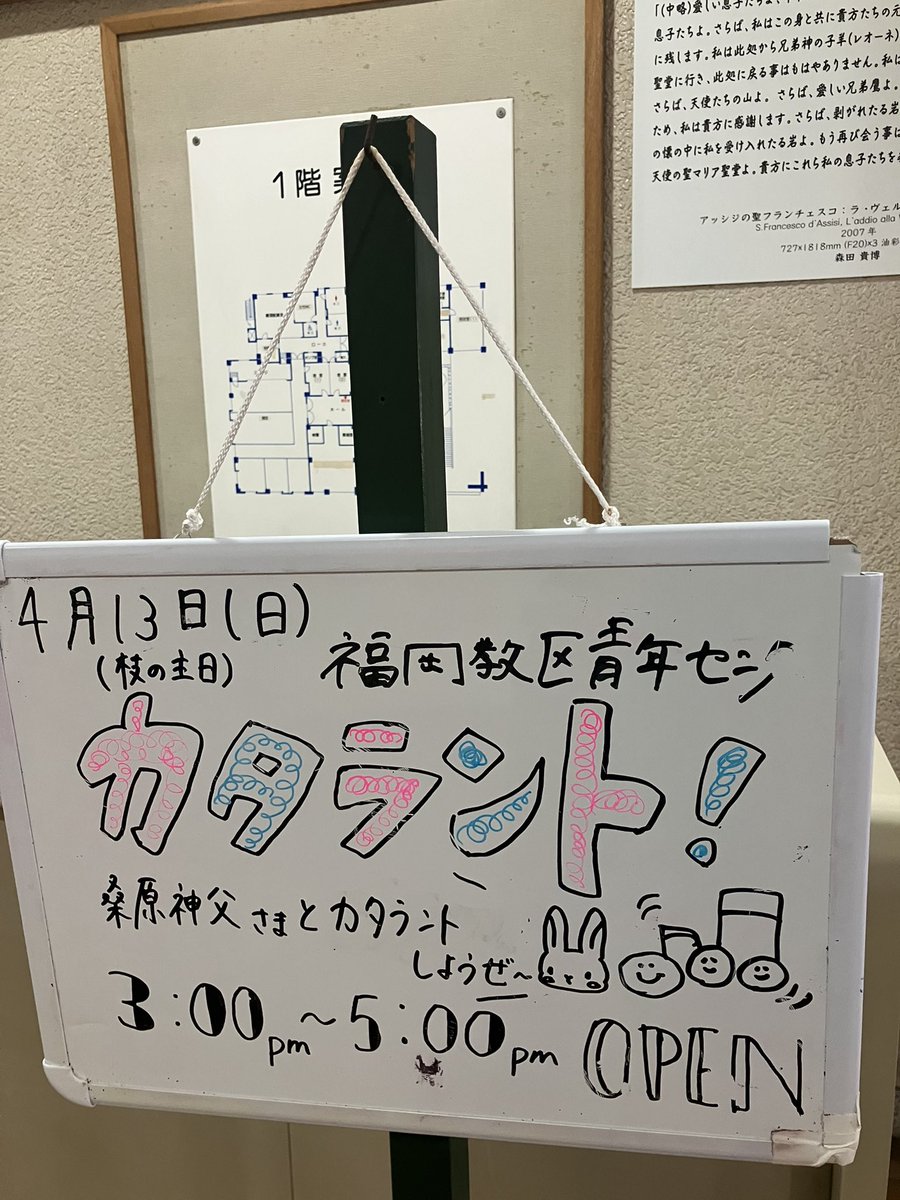 「(中略)愛しい息子たちよ、
息子たちよ。さらば、私はこの身と共に貴方たちの元
に残します。私は此処から兄弟神の子羊(レオーネ)
聖堂に行き、此処に戻る事はもはやありません。私は
さらば、天使たちの山よ。さらば、愛しい兄弟鷹よ。
ため、私は貴方に感謝します。さらば、剥がれたる岩
の懐の中に私を受け入れたる岩よ。もう再び会う事は
天使の聖マリア聖堂よ。貴方にこれら私の息子たちを
アッシジの聖フランチェスコ：ラ・ヴェル
S.Francesco d'Assisi, L'addio alla
2007 年
727×1818mm (F20)×3 油彩
森田 貴博
1階
4月13日(日)
(枝の主日)
福岡教区青年センジ
カタラント!
桑原神父さまとカタラント
しようぜ~
3:00pm~5:00pm OPEN